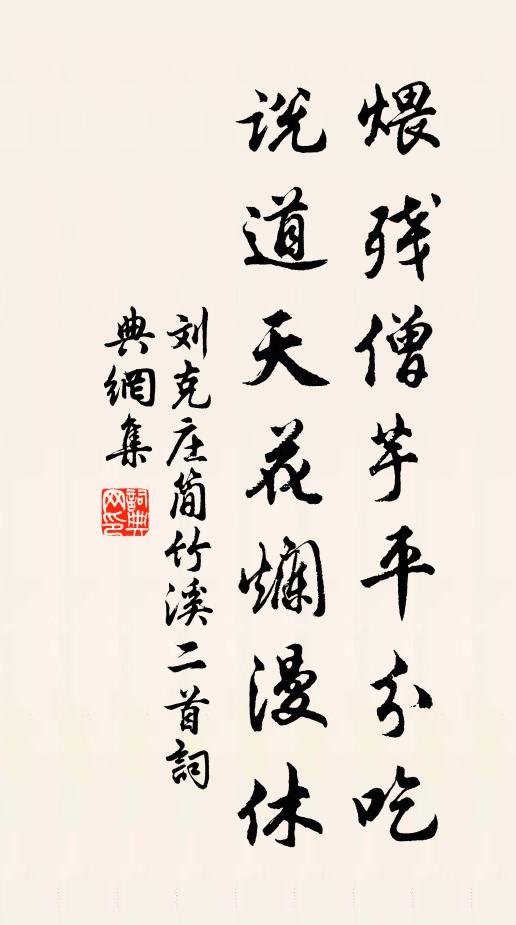 煨残僧芋平分吃
说道天花爛漫休
刘克庄简竹溪二首詞
典網集
詞典网印